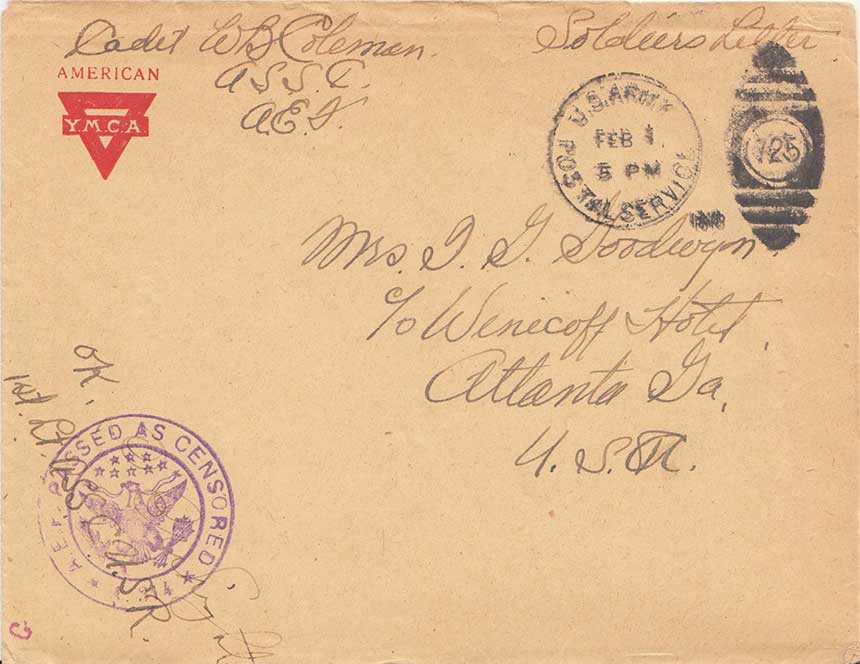 Cadet W B Coleman. Soldiers Letter
A S S. C.
A E F.
AMERICAN
Y.M.C.A
U.S. ARMY
POSTAL SERVICE
FEB 1
5 PM
725
Mrs. J. G. Goodwyn.
c/o Winicoff Hotel,
Atlanta Ga,
U. S. A.
OK.
1st. Lt. S S C A.S.R.
A.E.F. PASSED AS CENSORED